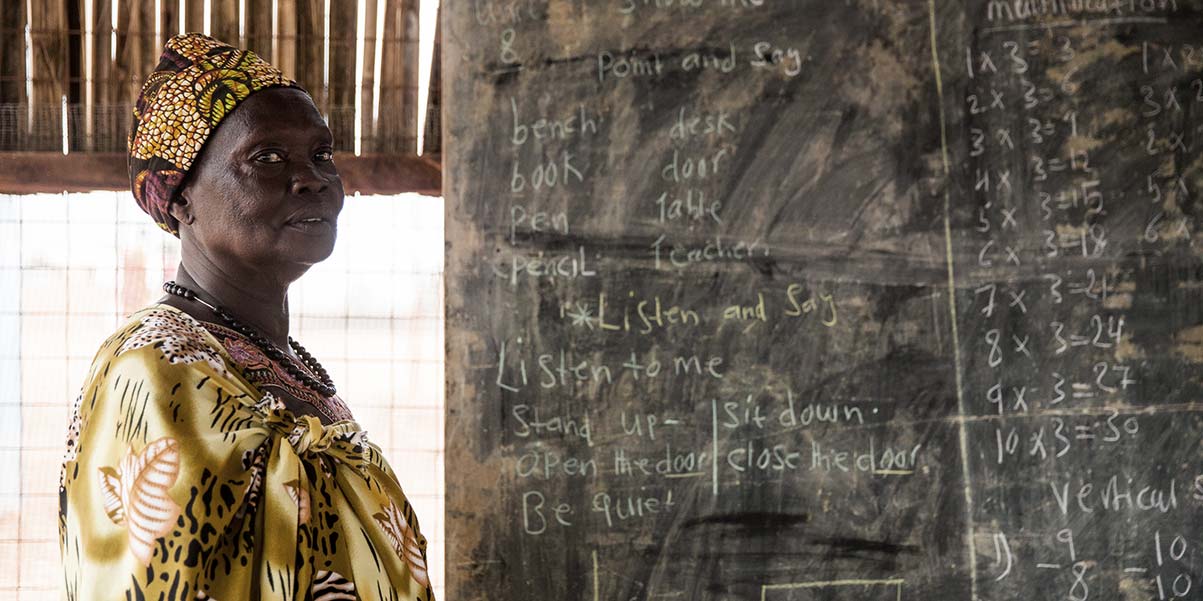 8
Point and Say.
bench desk
book door
pen Table
pencil Teacher
*Listen and Say
Listen to me
Stand up- Sit down.
Open the door close the door
Be quiet
multiplication
1 x 3= 3
2 x 3= 6
3 x 3= 9
4 x 3= 12
5 x 3=15
6 x 3=18
7 x 3=21
8 x 3=24
9 x 3=27
10 x 3=30
Vertical
1) 9 10
- 8 - 10